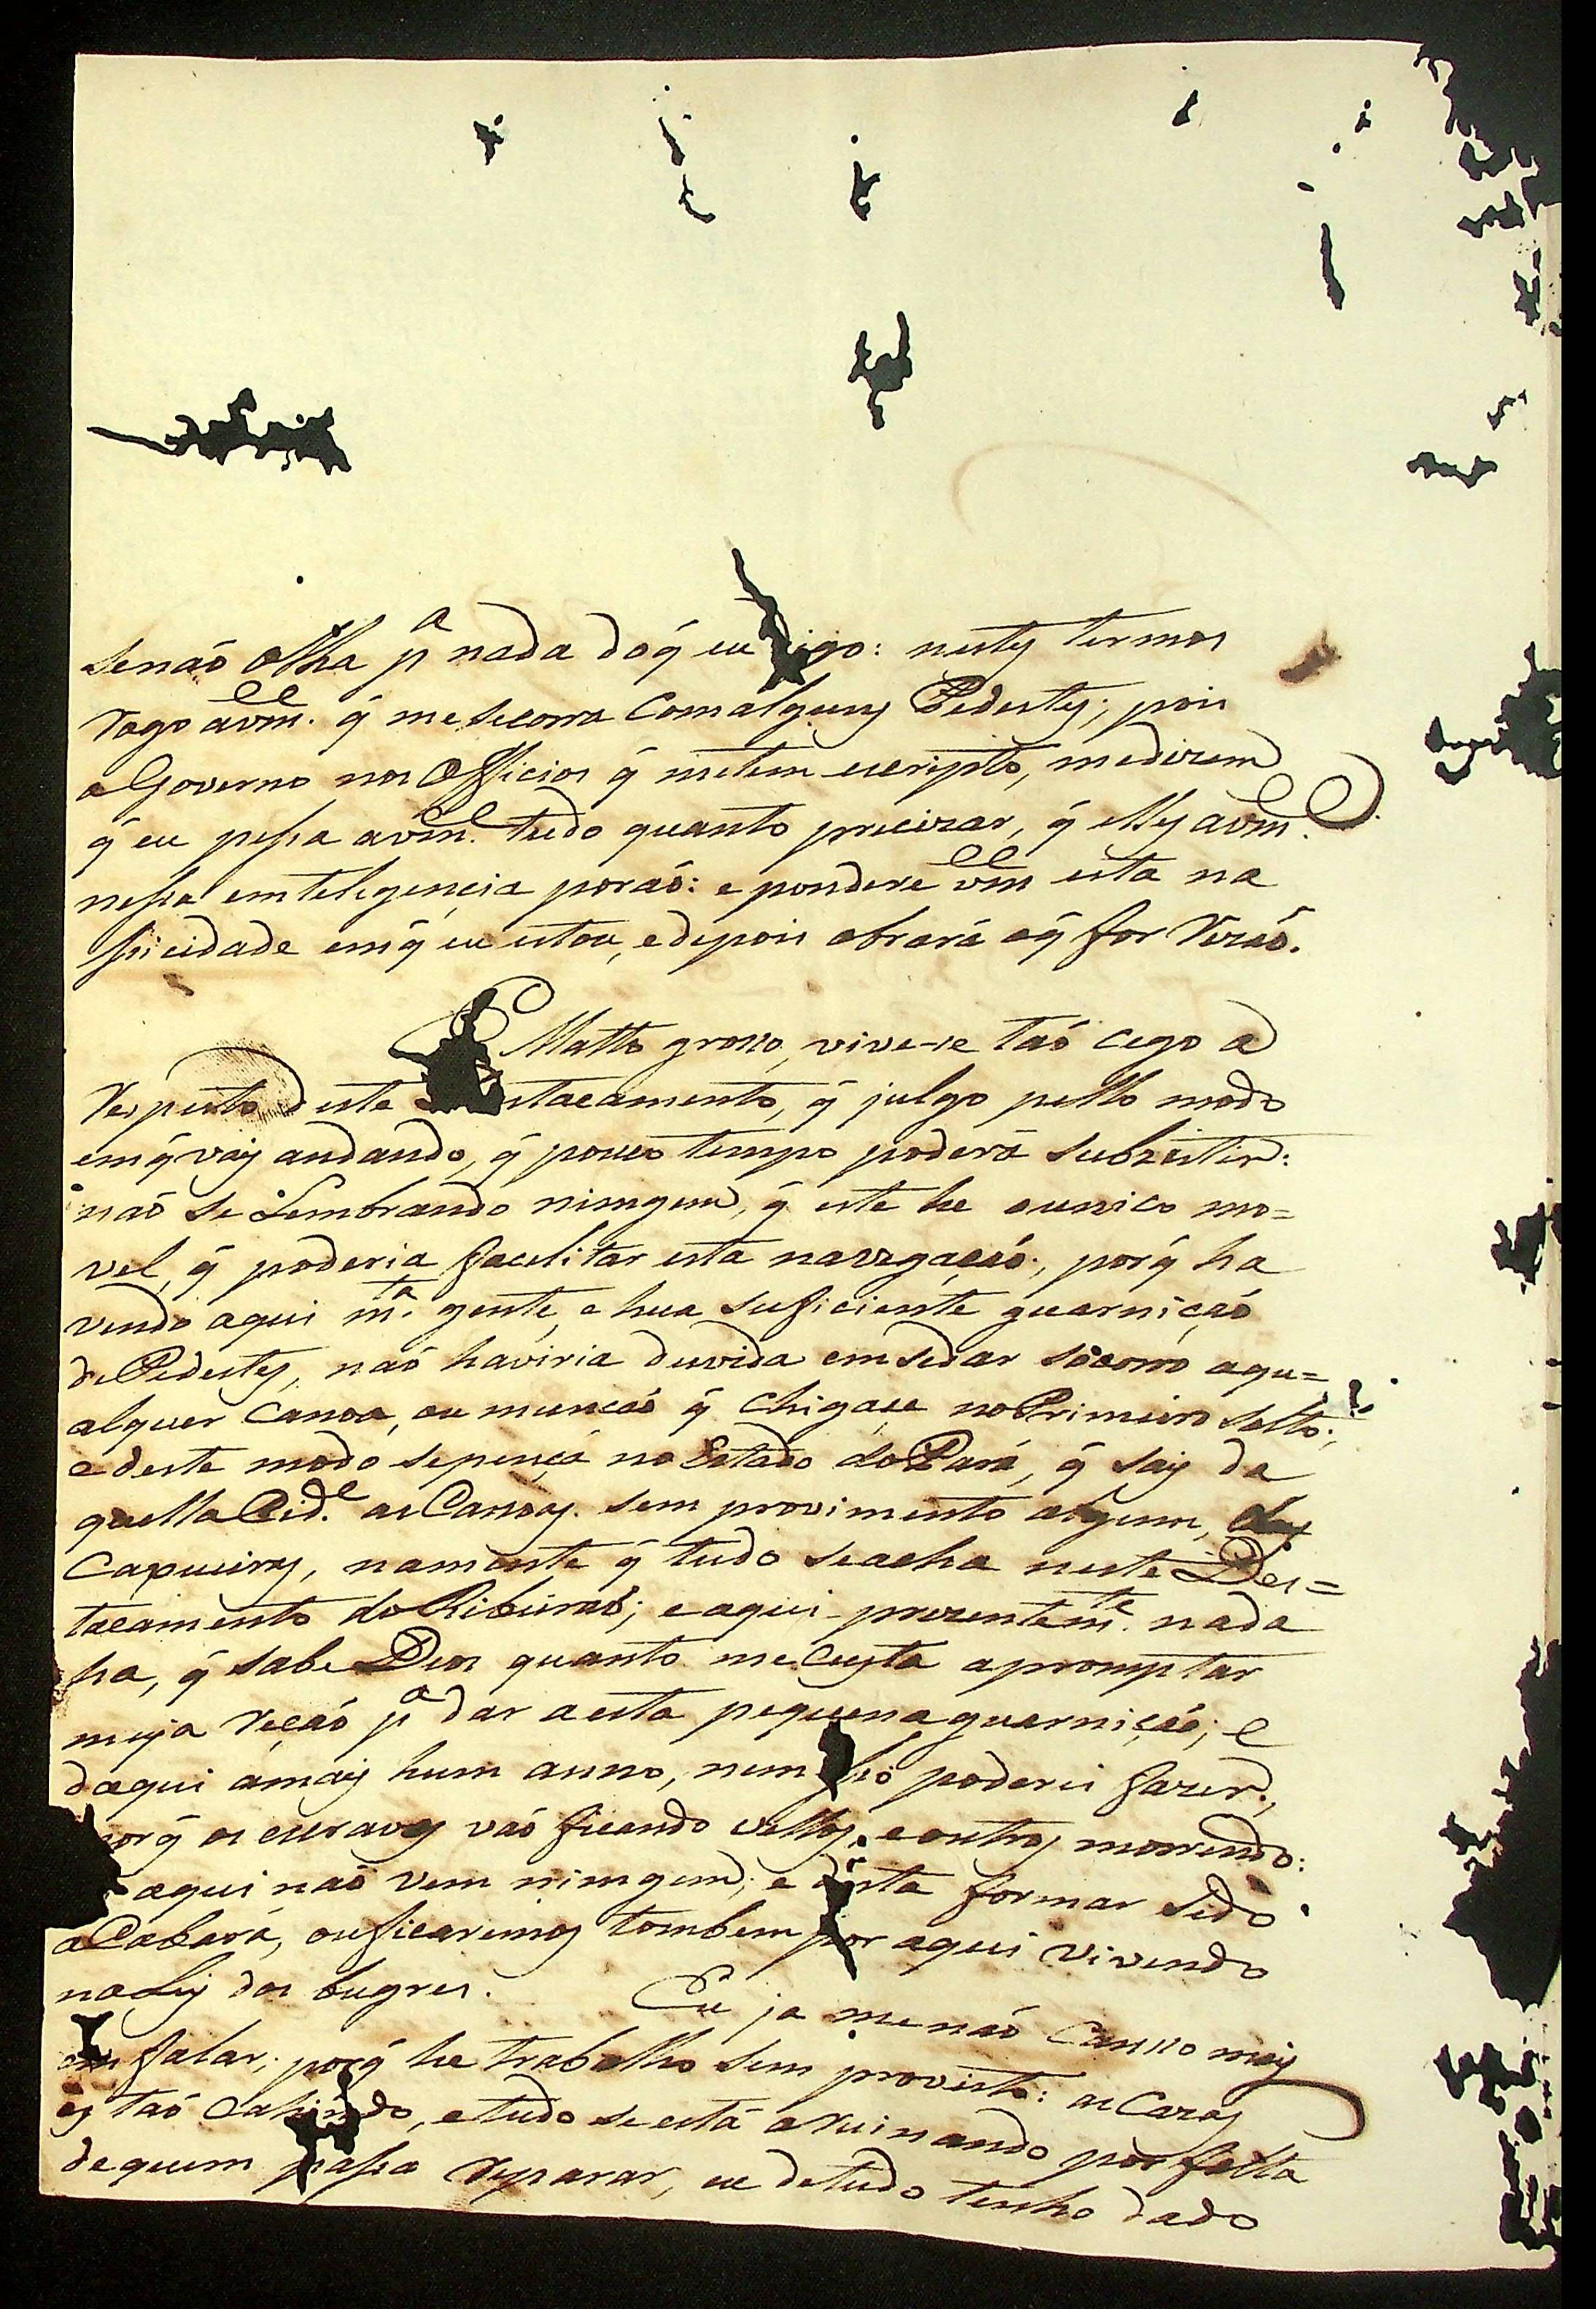 senaõ olha pª nada doq̃ eu digo: nestes termos
Rogo avm.ce q̃ mesecorra Comalguns Pedestes; pois
oGoverno nos Officios q̃ metem escripto, medizem
q̃ eu pessa avm.ce tudo quanto precizar, q̃ elles avm.ce
nessa emteligencia poraõ: e pondere vm.ce esta na
sicidade emq̃ eu estou, edepois obrará oq̃ for Rezaõ.
Em Matto grosso, vive-se taõ cego a
Respeito deste Destacamento, q̃ julgo pello modo
emq̃ vay andando, q̃ pouco tempo poderá subzistir:
naõ se Lembrando nimgem, q̃ este he ounico mo=
vel, q̃ poderia facelitar esta navegaçaõ; porq̃ ha
vendo aqui m.ta gente, e hua suficiente guarniçaõ
dePedestes, naõ haviria duvida emsedar socorro aqu=
alquer Canoa, ou munçaõ q̃ chigase noPrimeiro salto;
edeste modo sepença no Estado doPará, q̃ say da
quella Cid.e as Canoas sem provimento algum,
Capueiras, namente q̃ tudo seacha neste Des=
tacamento doRibeiraõ; eaqui prezentem.te nada
ha, q̃ sabe Deos quanto me Custa apromptar
meya Reçaõ pª dar aesta pequena guarniçaõ; e
daqui amays hum anno, nem isso poderei fazer;
porq̃ os escravos vaõ ficando velhos, eoutros morrendo:
aqui naõ vem nimgem; e desta forma tudo
aCabará, ouficaremos tombem por aqui vivendo
naLey dos bugres. Eu ja menaõ Cansso mais
em falar; porq̃ he trabalho sem proveito: as Cazas
es taõ Cahindo, etudo seestá aRuinando por falta
dequem possa Reparar, eu detudo tenho dado